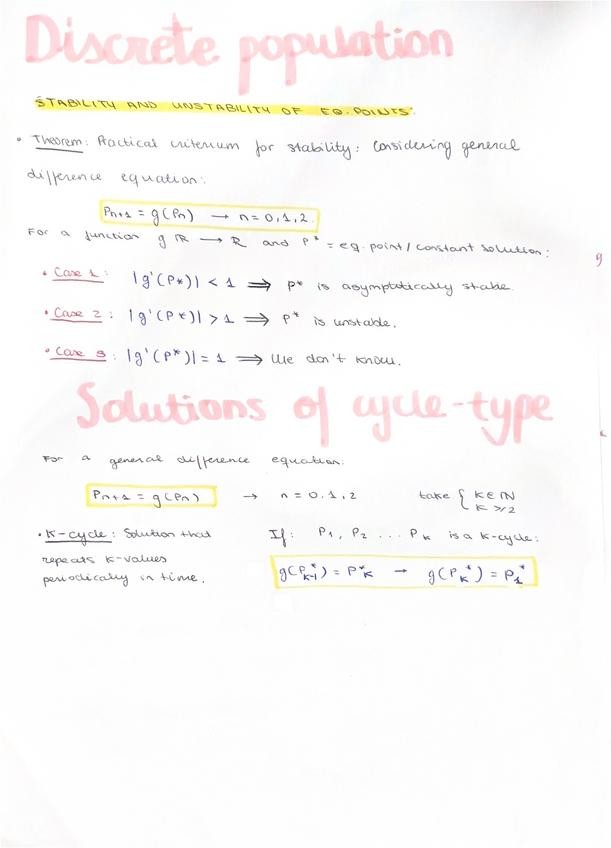 Discrete population
STABILITY AND UNSTABILITY OF EQ. POINTS:
• Theorem: Practical criterium for stability: Considering general
difference equation:
Pn+1 = g(Pn) → n = 0, 1, 2.
For a function g IR → R and P* = eq. point / constant solution:
• Case 1: |g'(P*)| < 1 ⟹ P* is asymptotically stable.
• Case 2: |g'(P*)| > 1 ⟹ P* is unstable.
• Case 3: |g'(P*)| = 1 ⟹ We don't know.
Solutions of cycle-type
For a general difference equation:
Pn+1 = g(Pn) → n = 0, 1, 2 take { K ∈ IN K ≥ 2
• K-cycle: Solution that
repeats k-values
periodically in time.
If: P1, P2 ... PK is a K-cycle:
g(P*K-1) = P*K → g(PK*) = P1*